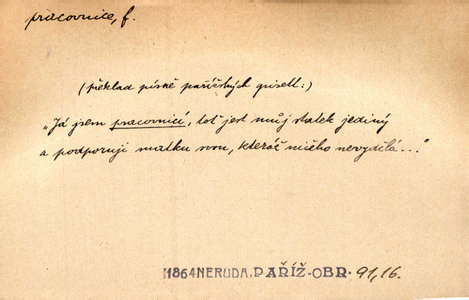 pracovnice, f.
(překlad písně pařížských griset:)
„Já jsem pracovnicí, toť jest můj statek jediný
a podporuji matku svou, kteráž ničeho nevydělá..."
1864 NERUDA, PAŘÍŽ-OBR. 91,16.